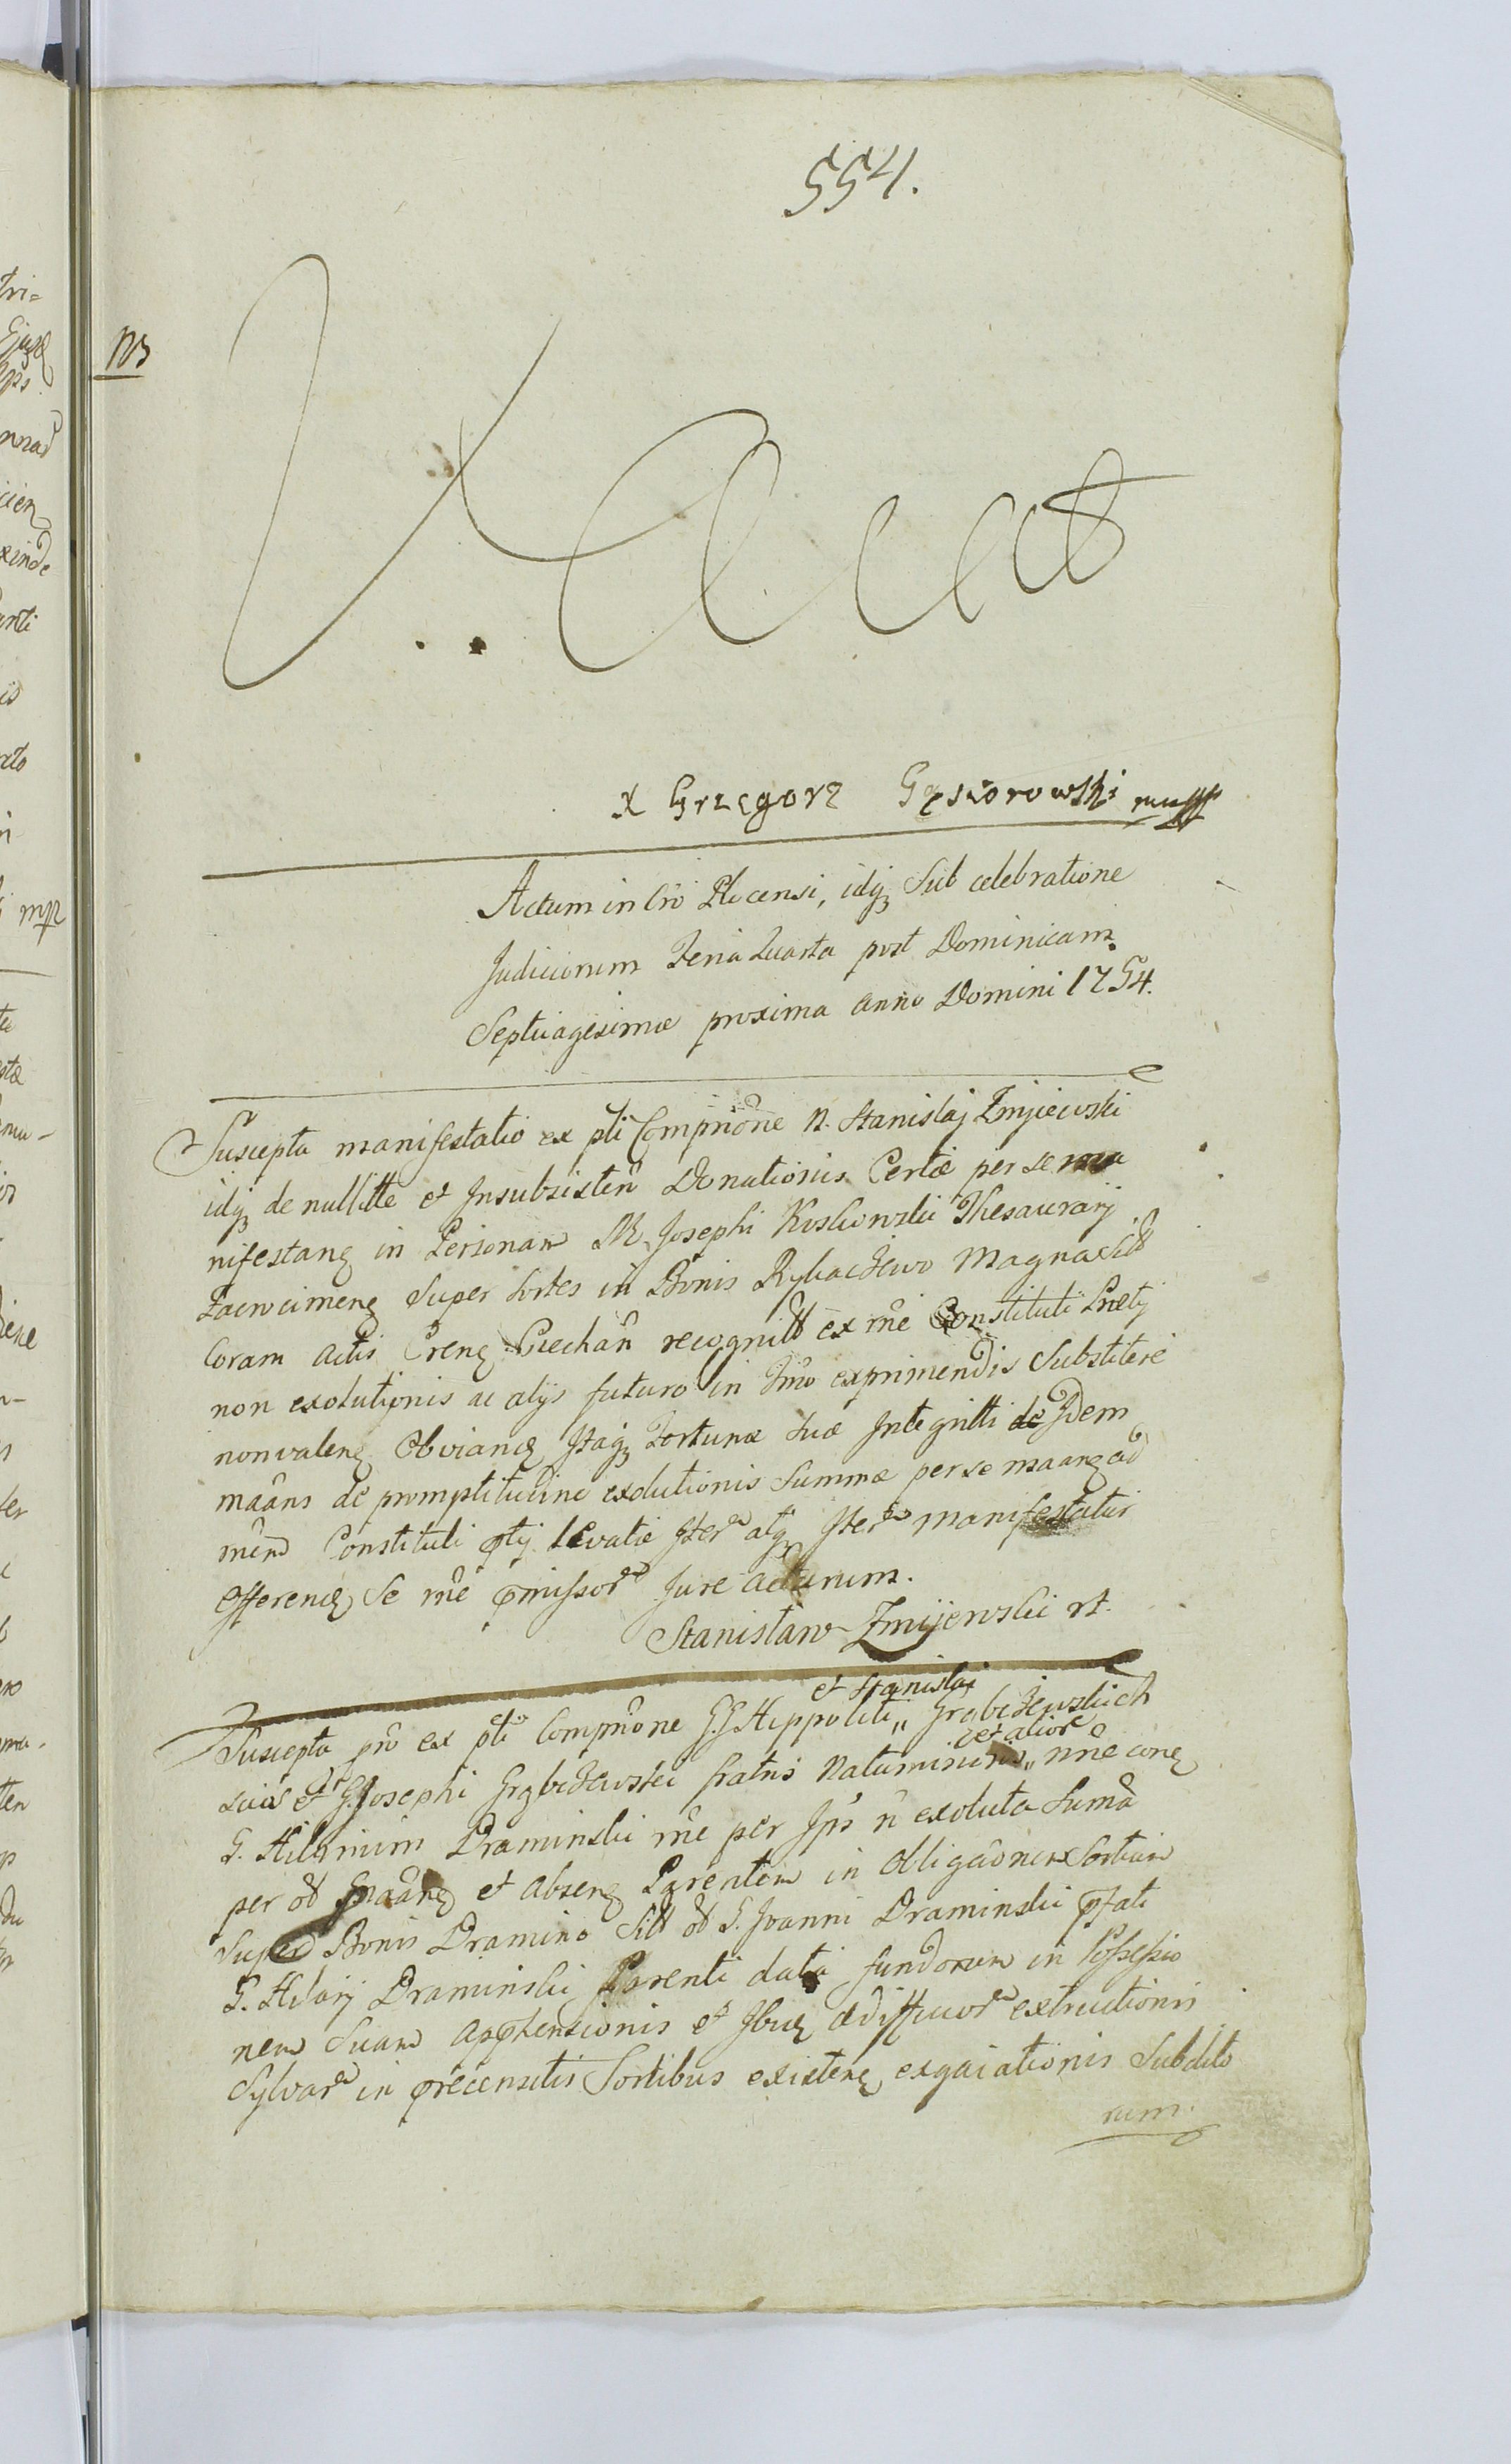 554.
NB
Vacat
X Grzegorz Gąsiorowski mpp
Actum in Cro Plocensi, idq3 Sub celebratione
Judiciorum Feria Quarta post Dominicam
Septuagesimæ proxima Anno Domini 1754.
Suscepta manifestatio ex pti Comprione N. Stanislaj Zmijewski
idq3 de nullitte et Insubsisten Donationis Certæ per se ma
nifestang in Personam M. Josephi Kosłowski Thesaurarij
Zacrocimeng Super Sortes in Bonis Rybaczewo Magna Sitt
Coram Actis Creng Ciechan recognitt ex rne Constituti Prætij
non exolutionis ac alijs futuro in Jmo exprimendis Substitere
non valeng Obviang Itaq3 Fortunæ Suæ Integritti de Idem
maans de promptitudine exolutionis Summæ per se maang ad
men Constituti ptij levatæ Iter atq3 Iter manifestatur
Offereng Se rne pmissor Jure Acturum.
Stanisław Zmijewski rt.
et Stanislai
Suscepta pro ex pti Comprione G.G. Hippoliti,, Grąbczewskich
et aliore
suis et G. Josephi Grąbczewski fratris Natu minoris,, nne cong
G. Hilarium Draminski rne per Ips n exoluta Suma
per od maang et Abseng Parentem in Obligaonem Sortium
Super Bonis Dramino Sitt od G. Joanni Draminski pfati
G. Hilarij Draminski Parenti data fundorum in Possessio
nem Suam Apphensionis et Ibiq Ædifficior extructionis
Sylvar in præcensitis Sortibus existeng exgaiationis Subdito
rum.